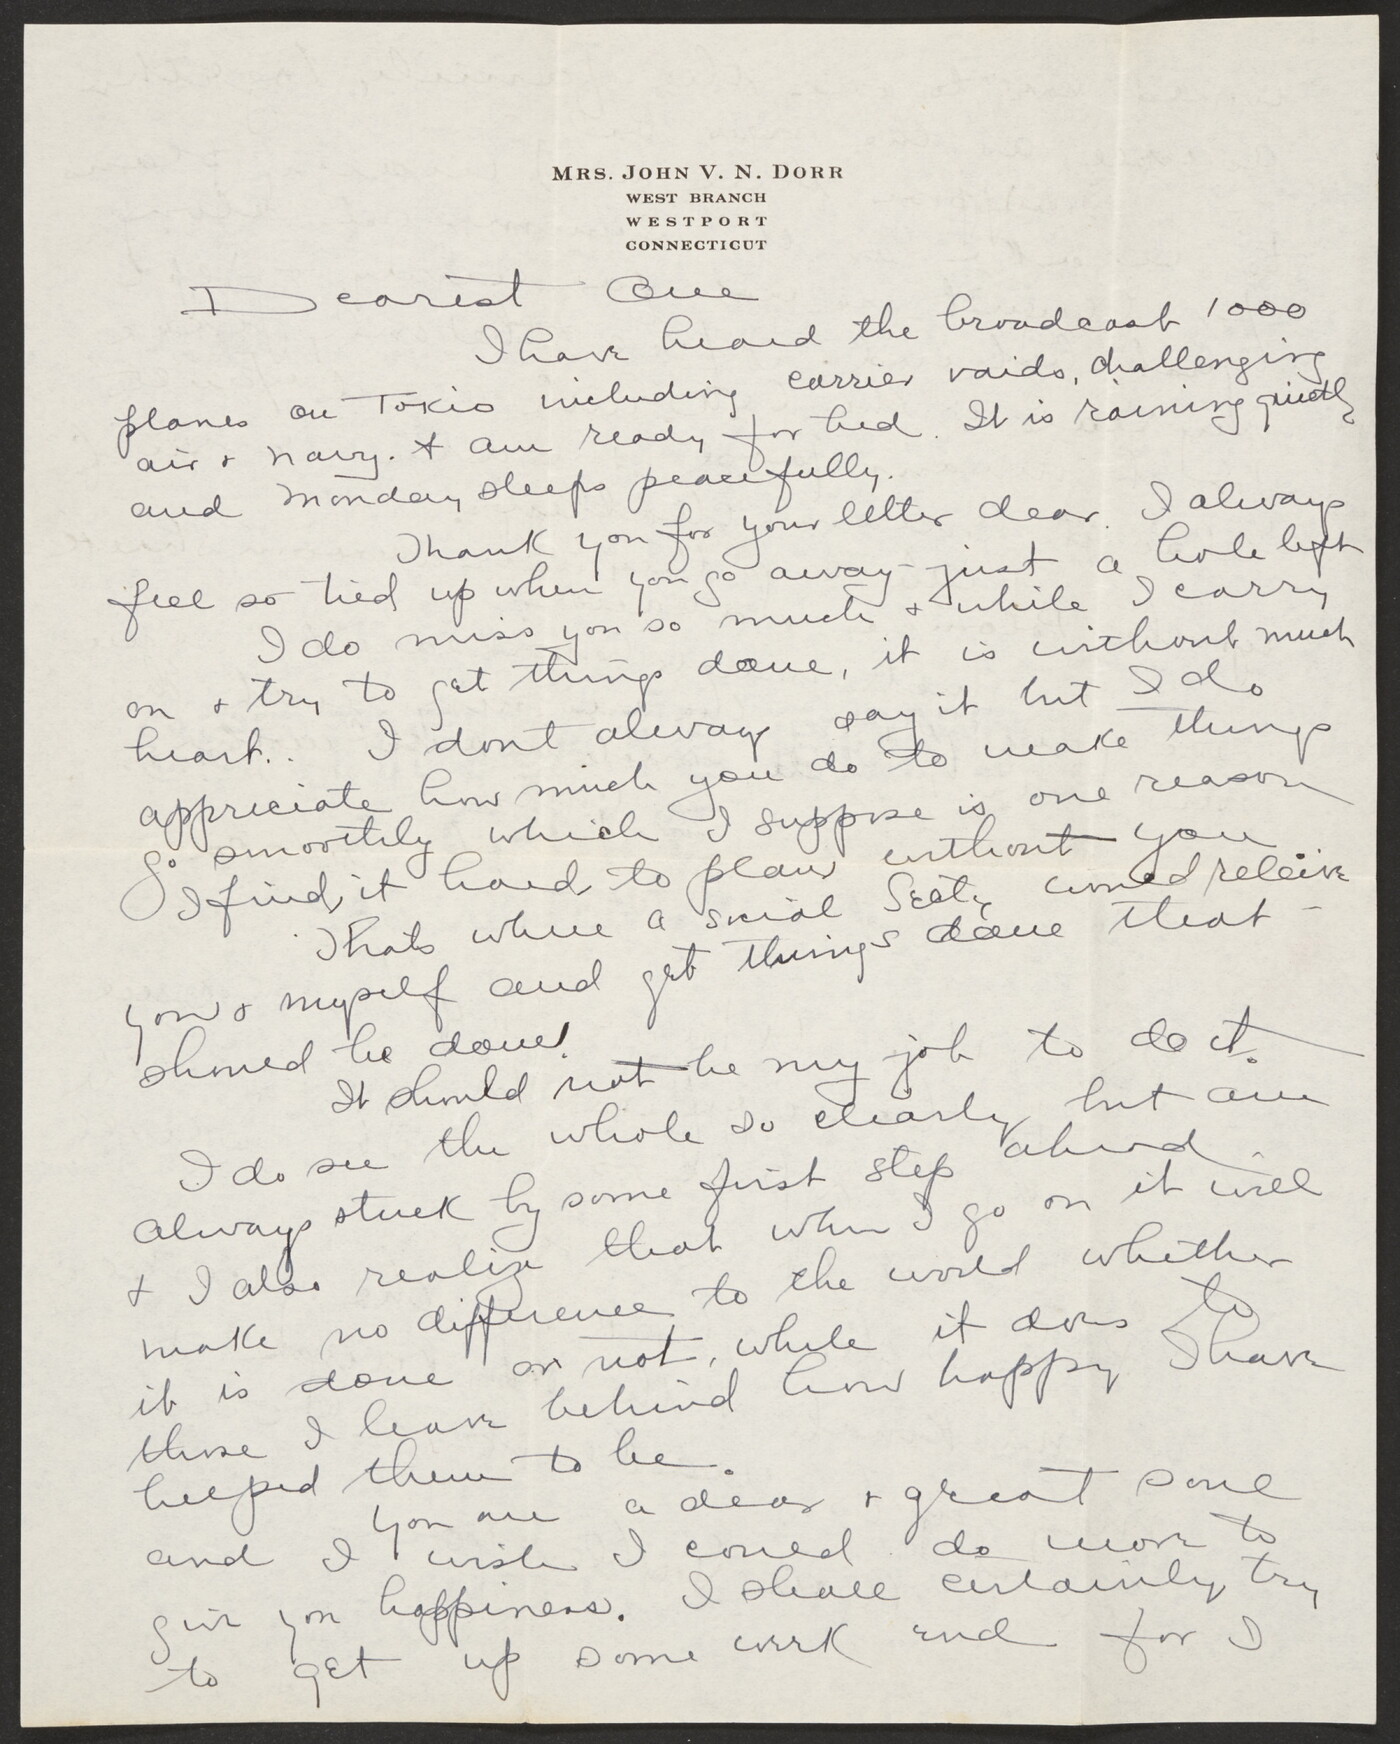 MRS. JOHN V. N. DORR
WEST BRANCH
WESTPORT
CONNECTICUT
Dearest One
I have heard the broadcast 1000
planes on Tokio including carrier raids, challenging
air + navy. + am ready for bed. It is raining quietly
and Monday sleeps peacefully.
Thank you for your letter dear. I always
feel so tied up when you go away - just a hole left
I do miss you so much + while I carry
on + try to get things done, it is without much
heart.. I dont always say it but I do
appreciate how much you do to make things
go smoothly which I suppose is one reason
I find it hard to plan without you
Thats where a social Secty would releive
you + myself and get things done that -
should be done!
It should not be my job to do it.
I do see the whole so clearly but am
always stuck by some first step ahead
+ I also realize that when I go on it will
make no difference to the world whether
it is done or not, while it does to
those I leave behind how happy I have
helped them to be.
You are a dear + great soul
and I wish I could do more to
give you happiness. I shall certainly try
to get up some week end for I